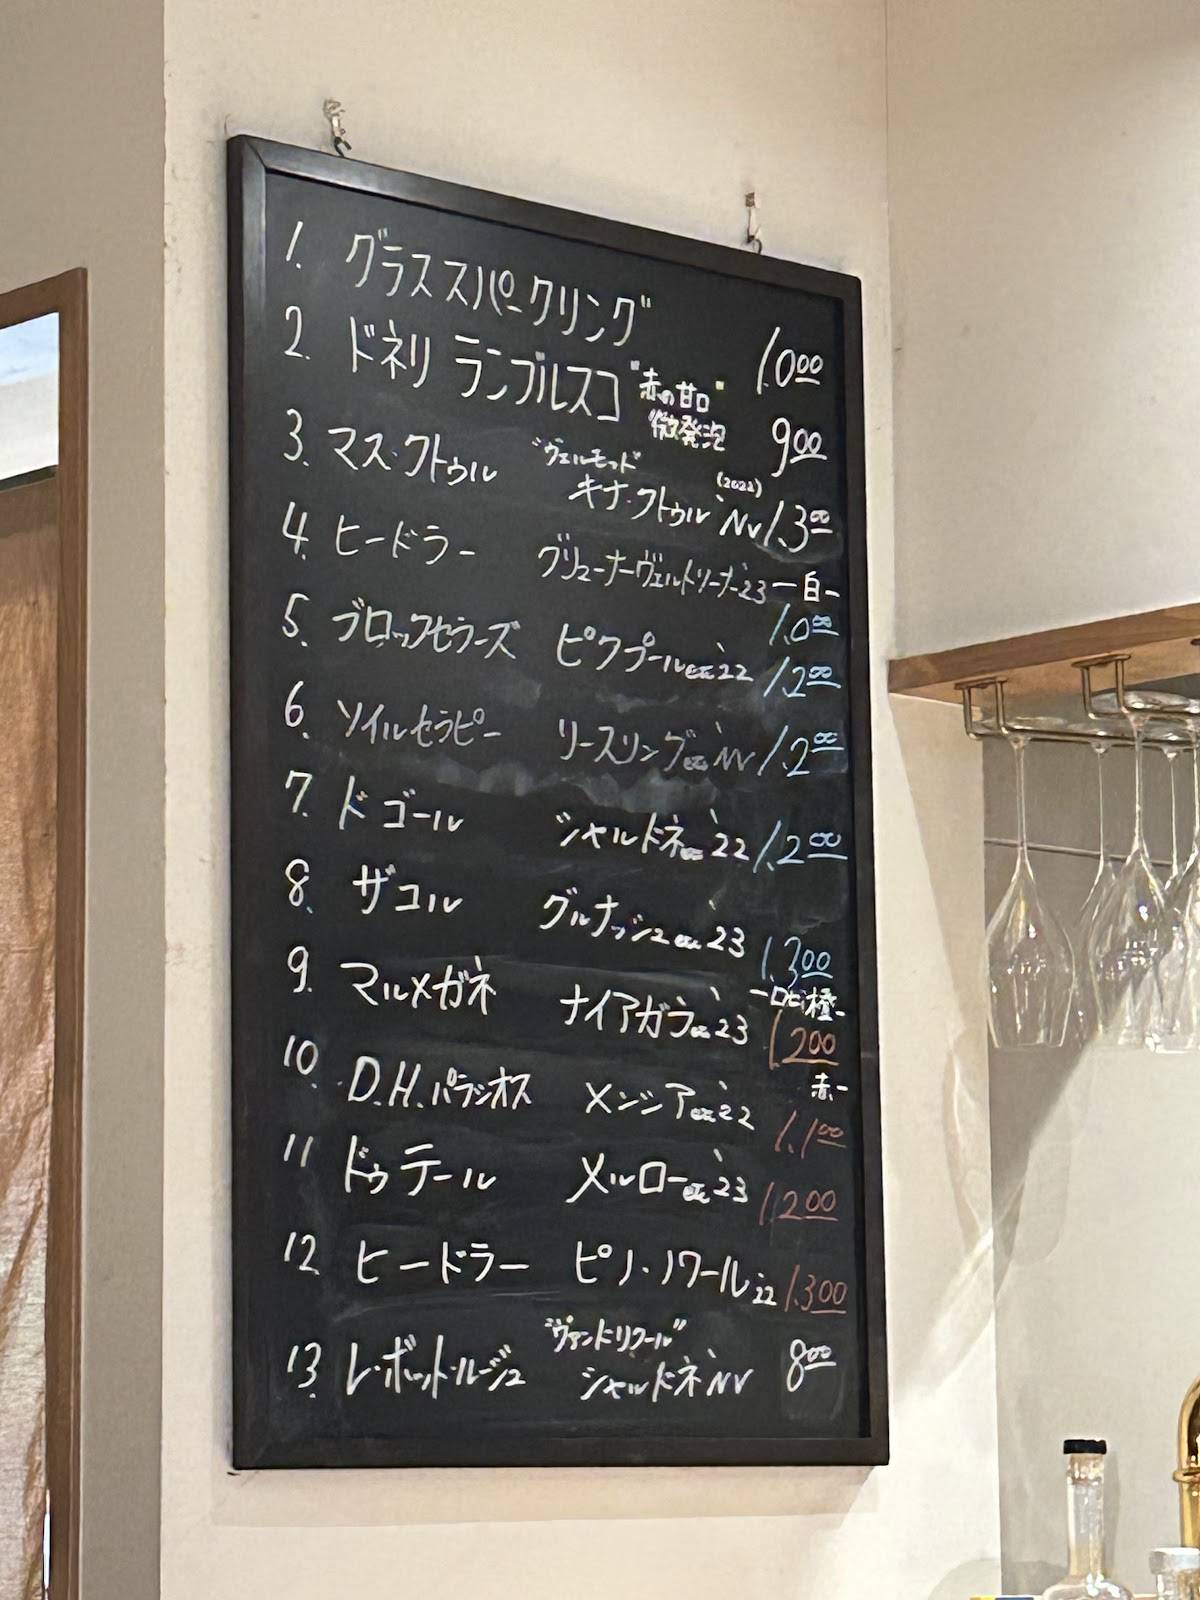 1. グラススパークリング 1.000
2. ドネリ ランブルスコ "赤の甘口" 微発泡 900
3. マス・クトゥル "ヴェルモット" キナ・クトゥル (2022) NV 1.300
4. ヒードラー グリューナーヴェルトリーナー '23 ー白ー 1.000
5. ブロックセラーズ ピクプールetc '22 1.200
6. ソイルセラピー リースリングetc NV 1.200
7. ド ゴール シャルドネetc '22 1.200
8. ザコル グルナッシュetc '23 1.300
9. マルメガネ ナイアガラetc '23 ーロゼ橙ー 1.200
10. D.H.パラシオス メンシアetc '22 赤ー 1.100
11. ドゥ テール メルローetc '23 1.200
12. ヒードラー ピノ・ノワール '22 1.300
13. レ・ボット・ルージュ "ヴァンドリクール" シャルドネ NV 800